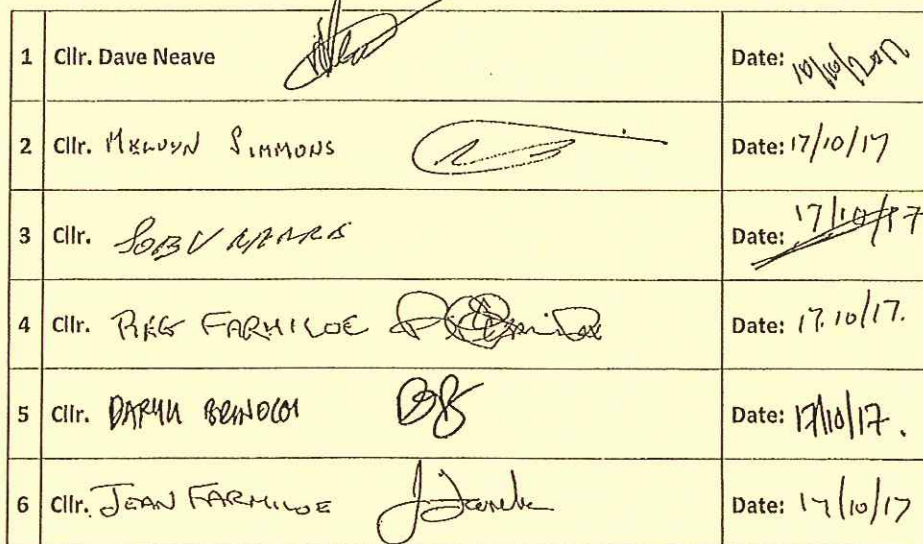 1 Cllr. Dave Neave Date: 10/10/2017
2 Cllr. MELVYN SIMMONS Date: 17/10/17
3 Cllr. Date: 17/10/17
4 Cllr. REG FARMILOE Date: 17.10/17.
5 Cllr. DARYLL Date: 17/10/17.
6 Cllr. JEAN FARMILOE Date: 17/10/17